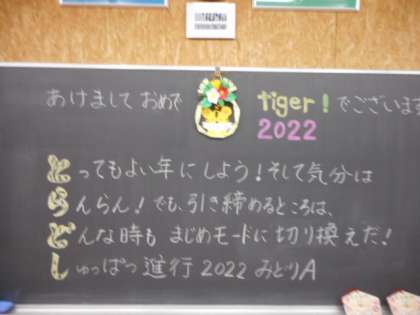 あけまして おめで tiger! でございます
2022
とってもよい年にしよう!そして気分は
らんらん!でも、引き締めるところは、
どんな時も まじめモードに切り換えだ!
しゅっぱつ進行 2022 みどりA